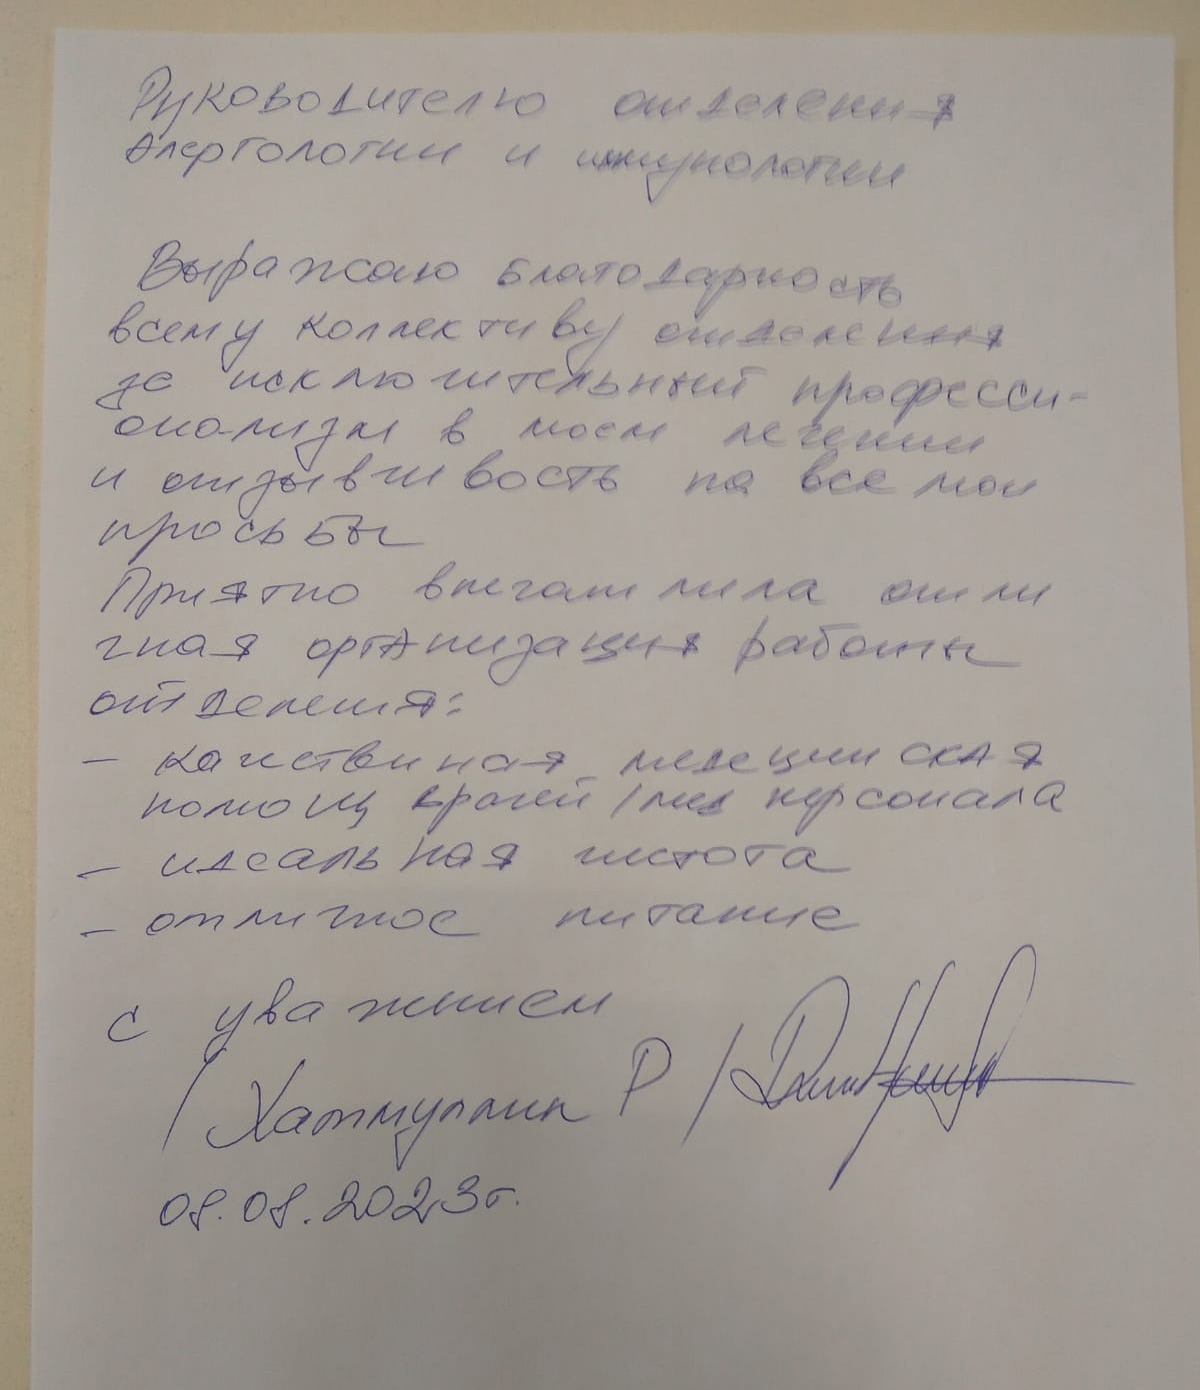 Руководителю отделения
Алергологии и иммунологии
Выражаю благодарность
всему коллективу отделения
за исключительный професси-
онализм в моем лечении
и отзывчивость на все мои
просьбы
Приятно впечатлила отли
чная организация работы
отделения:
- качествиная медецинская
помощ врачей / мед персонала
- идеальная чистота
- отличное питание
с уважением
/ Хатмуллин Р /
08.08.2023г.